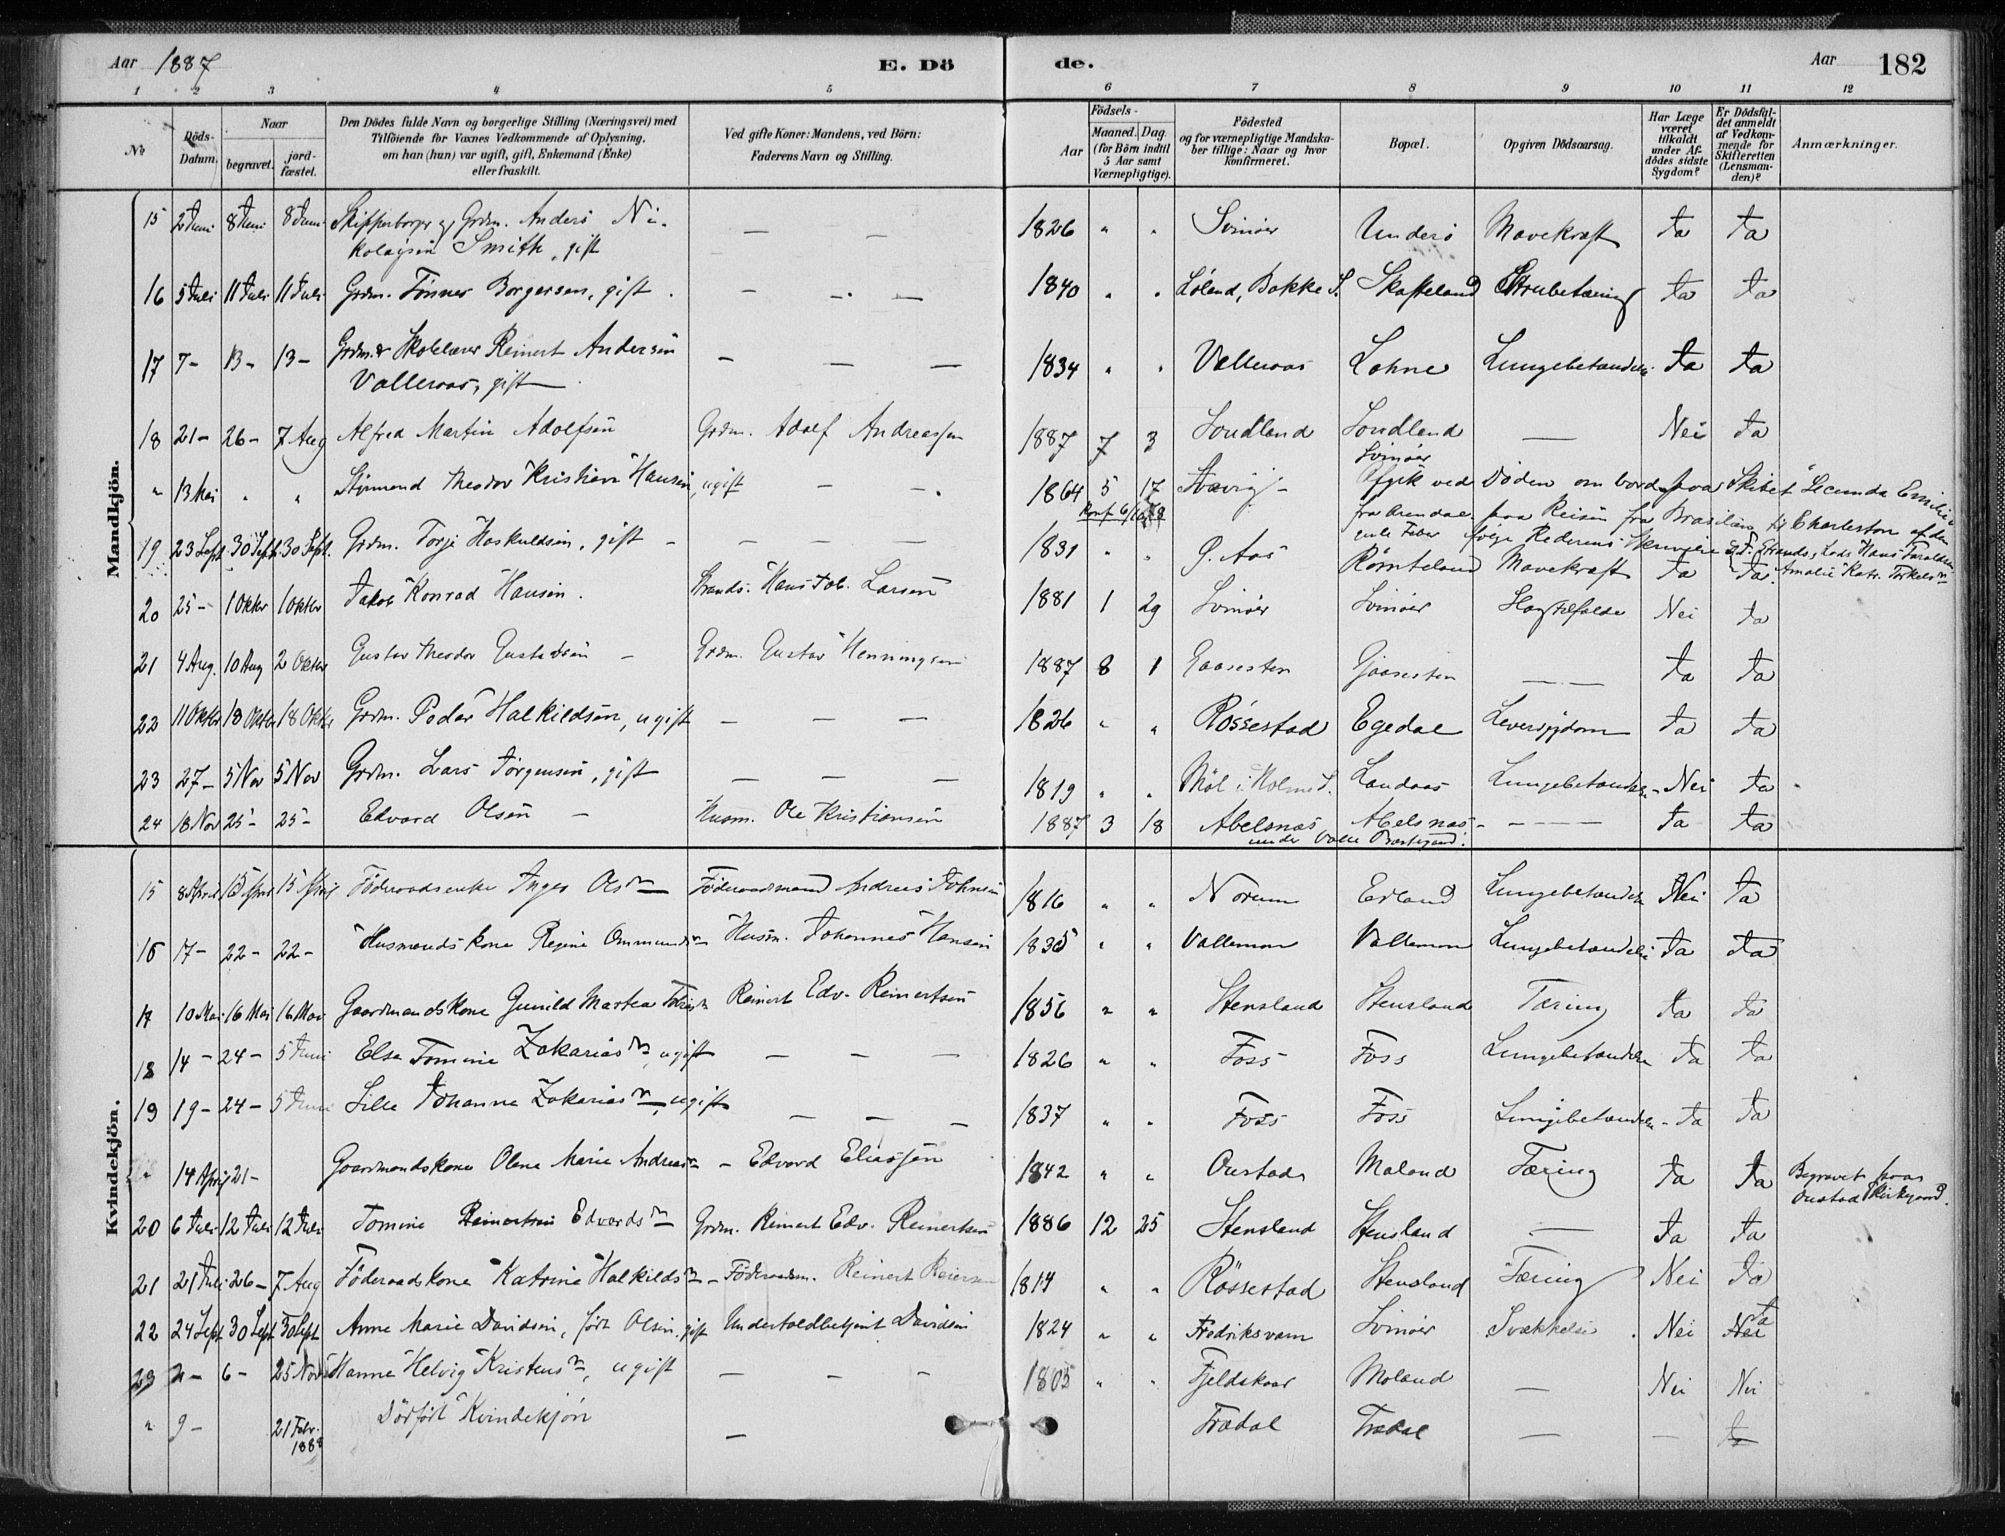 Aar 1887 E. Döde. Aar 182
1 2 3 4 5 6 7 8 9 10 11 12
No
Döds-Datum.
Naar
begravet.
jordfæstet.
Den Dödes fulde Navn og borgerlige Stilling (Næringsvei) med
Tilföiende for Voxnes Vedkommende af Oplysning,
om han (hun) var ugift, gift, Enkemand (Enke)
eller fraskilt.
Ved gifte Koner: Mandens, ved Börn:
Faderens Navn og Stilling.
Födsels-
Aar
Maaned. Dag.
(for Börn indtil
5 Aar samt
Værnepligtige).
Födested
og for værnepligtige Mandskaber tillige: Naar og hvor
konfirmeret.
Bopæl.
Opgiven Dödsaarsag.
Har Læge
været
tilkaldt
under Afdödes sidste
Sygdom?
Er Dödsfaldet anmeldt
af Vedkommende for
Skifteretten
(Lensmanden)?
Anmærkninger.
Mandkjön.
15 2 Juni 8 Juni 8 Juni Skipperborger og Grdm. Anders Nikolaysen Smith, gift — — 1826 " " Svinöer Underö Mavekræft Ja Ja
16 5 Juli 11 Juli 11 Juli Grdm. Tönnes Borgersen, gift — — — 1840 " " Löland, Bakke S. Skofteland Strubetæring Ja Ja
17 7 – 13 – 13 – Grdm. & Skolelærer Reinert Andersen Valleraas, gift — — — 1834 " " Valleraas Lohne Lungebetændelse Ja Ja
18 21 – 26 – 7 Aug Alfred Martin Adolfsen Grdm. Adolf Andreassen 1887 7 3 Londland Londland — Nei Ja
" 13 Mai " " Styrmand Theodor Kristian Hansen, ugift — — 1864 5 17 Svinöer Afgik ved Döden om bord paa Skibet "Secunda Emilie"
fra Arendal paa Reisen fra Brasilien til Charleston af den
gule Feber ifölge Rederens Skrivelse
19 23 Sept 30 Sept 30 Sept. Grdm. Torje Haskuldsen, gift – 1831 " " Ö. Aas Rörnteland Mavekræft Ja Ja.
20 25 – 1 Oktbr 1 Oktbr Jakob Konrad Hansen. Strands. Hans Job. Larsen 1881 1 29 Svinöer Svinöer Slagtilfælde Nei Ja
21 4 Aug. 10 Aug 2 Oktbr Gustav Theodor Gustavsen – Grdm. Gustav Henningsen 1887 8 1 Gaasesten Gjaasesten — Ja Ja
22 11 Oktbr 18 Oktbr 18 Oktbr Grdm. Peder Halkildsen, ugift — — — 1826 " " Rössestad Egedal Leversygdom Ja Ja
23 27 – 5 Nov 5 Nov Grdm. Lars Jörgensen, gift — — — 1819 " " Möl i Holme S. Landaas Lungebetændelse – Nei Ja
24 18 Nov 25 – 25 – Edvard Olsen – Husm. Ole Kristiansen 1887 3 18 Abelsnæs Abelsnæs – — Ja Ja
under Valle Præstegaard.
Kvindekjön.
15 8 April 15 April 15 April Föderaadsenke Inger Olsdn Föderaadsmand Andreas Johnsen 1816 " " Norum Erland Lungebetændelse Nei Ja
16 17 – 22 – 22 – Husmandskone Regine Ommundsdn Husm. Johannes Hansen 1835 " " Vallemon Vallemon Lungebetændelse Ja Ja
17 10 Mai 16 Mai 16 Mai Gaardmandskone Gunild Martea Tobiasdn Reinert Edv. Reinertsen 1856 " " Stensland Stensland Tæring Ja Ja
18 14 – 24 – 5 Juni Else Tomine Zakariasdn, ugift — — — 1826 " " Foss Foss Lungebetændelse Ja Ja
19 19 – 24 – 5 Juni Sille Johanne Zakariasdn, ugift — — — 1837 " " Foss Foss Lungebetændelse – Ja Ja
" 14 April 21 – Gaardmandskone Olene Marie Andreasdn – Edvard Eliassen 1842 " " Oustad Moland Tæring Ja Ja Begravet paa
Oustad Kirkegaard.
20 6 Juli 12 Juli 12 Juli Tomine Reinertine Edvardsdn Grdm. Reinert Edv. Reinertsen 1886 12 25 Stensland Stensland — Ja Ja
21 21 Juli 26 – 7 Aug Föderaadskone Katrine Halkildsdn – Föderaadsm. Reinert Reiersen 1814 " " Rössestad Stensland Tæring Nei Ja
22 24 Sept 30 Sept 30 Sept Anne Marie Davidsen, född Olsen, gift Underfoldbetjent Davidsen 1824 " " Fredriksvarn Svinöer Svækkelse . Nei Nei Ja
23 2 – 6 – 25 Nov Hanne Helvig Kristensdn, ugift — — — 1805 " " Fjeldskaar Moland — Nei Nei
" 9 – 21 Febr. 1888 Dödfödt Kvindekjön — Trædal Trædal — — Ja